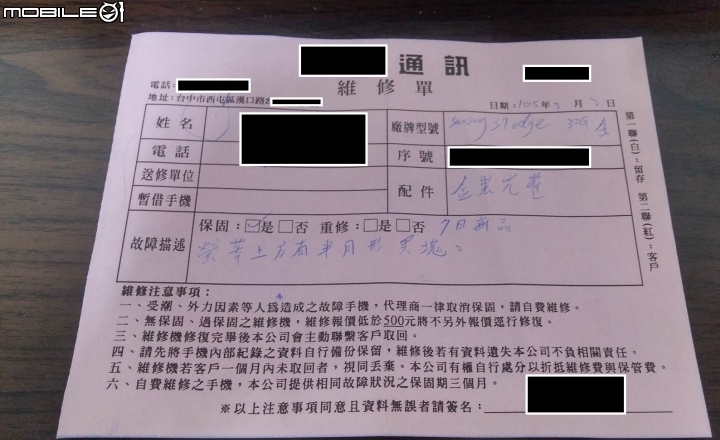 MOBILE01
通訊
維修單
電話：
地址：台中市西屯區漢口路
日期：105年3月 日
姓名
廠牌型號 S7 edge 32G 金
電話
序號
送修單位
配件
暫借手機
故障描述
保固：☑是□否 重修：□是□否 7日新品
螢幕上方有半月形黑塊。
第一聯(白)：留存 第二聯(紅)：客戶
維修注意事項：
一、受潮、外力因素等人為造成之故障手機，代理商一律取消保固，請自費維修。
二、無保固、過保固之維修機，維修報價低於500元將不另外報價逕行修復。
三、維修機修復完畢後本公司會主動聯繫客戶取回。
四、請先將手機內部紀錄之資料自行備份保留，維修後若有資料遺失本公司不負相關責任。
五、維修機若客戶一個月內未取回者，視同丟棄。本公司有權自行處分以折抵維修費與保管費。
六、自費維修之手機，本公司提供相同故障狀況之保固期三個月。
※以上注意事項同意且資料無誤者請簽名：